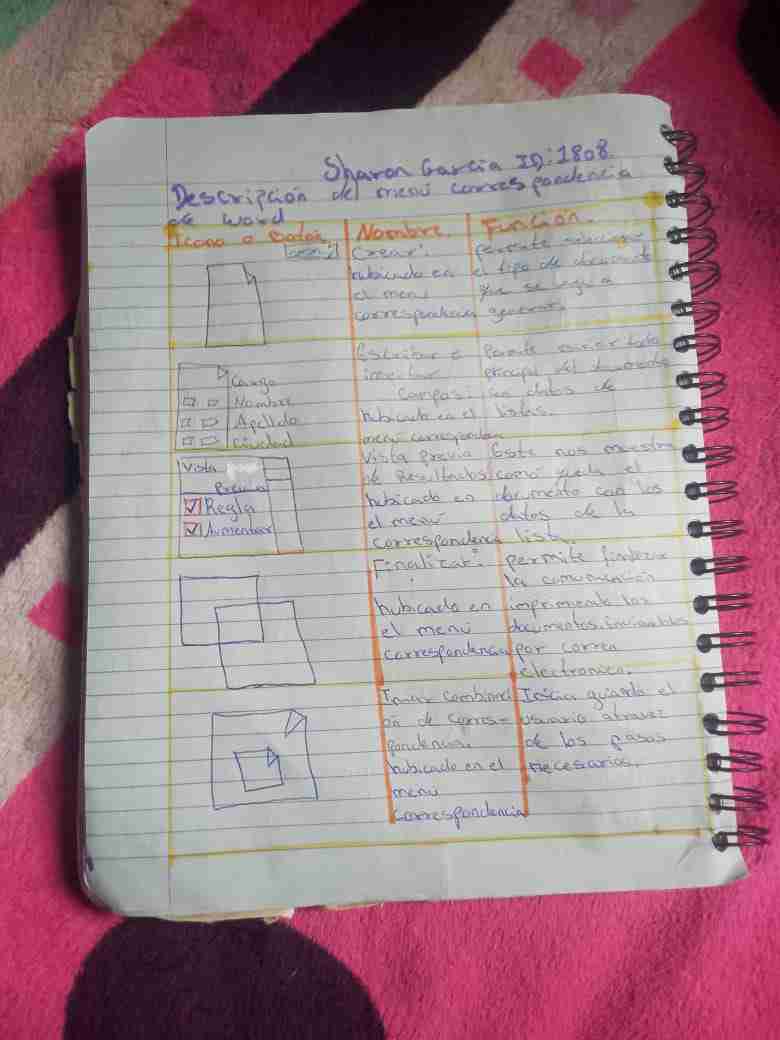 Sharon Garcia ID:1808
Descripción del menú correspondencia
de word
Icono o Botón, Nombre. Función.
Crear:
hubicado en
el menú
correspondencia
permite seleccionar
el tipo de documento
que se
Cargo
Nombre
Apellido
ciudad
Escribir e
hubicado en el
menú
Permite
principal del documento
sin datos de
listas.
Vista
Previa
Regla
Aumentar
Vista Previa
de Resultados
hubicado en
el menú
correspondencia
Este nos muestra
como queda el
documento con los
datos de la
lista.
Finalizar:
hubicado en
el menú
correspondencia
permite finalizar
la
imprimiendo los
documentos
por correo
electronico.
de corres-
pondencia.
hubicado en el
menú
correspondencia
Inicia guarda el
usuario atravez
de los pasos
necesarios.